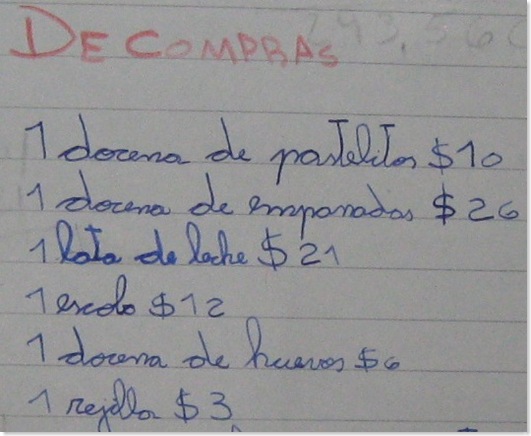 DE COMPRAS
1 docena de pastelitos $10
1 docena de empanadas $26
1 lata de leche $21
1 escoba $12
1 docena de huevos $6
1 rejilla $3